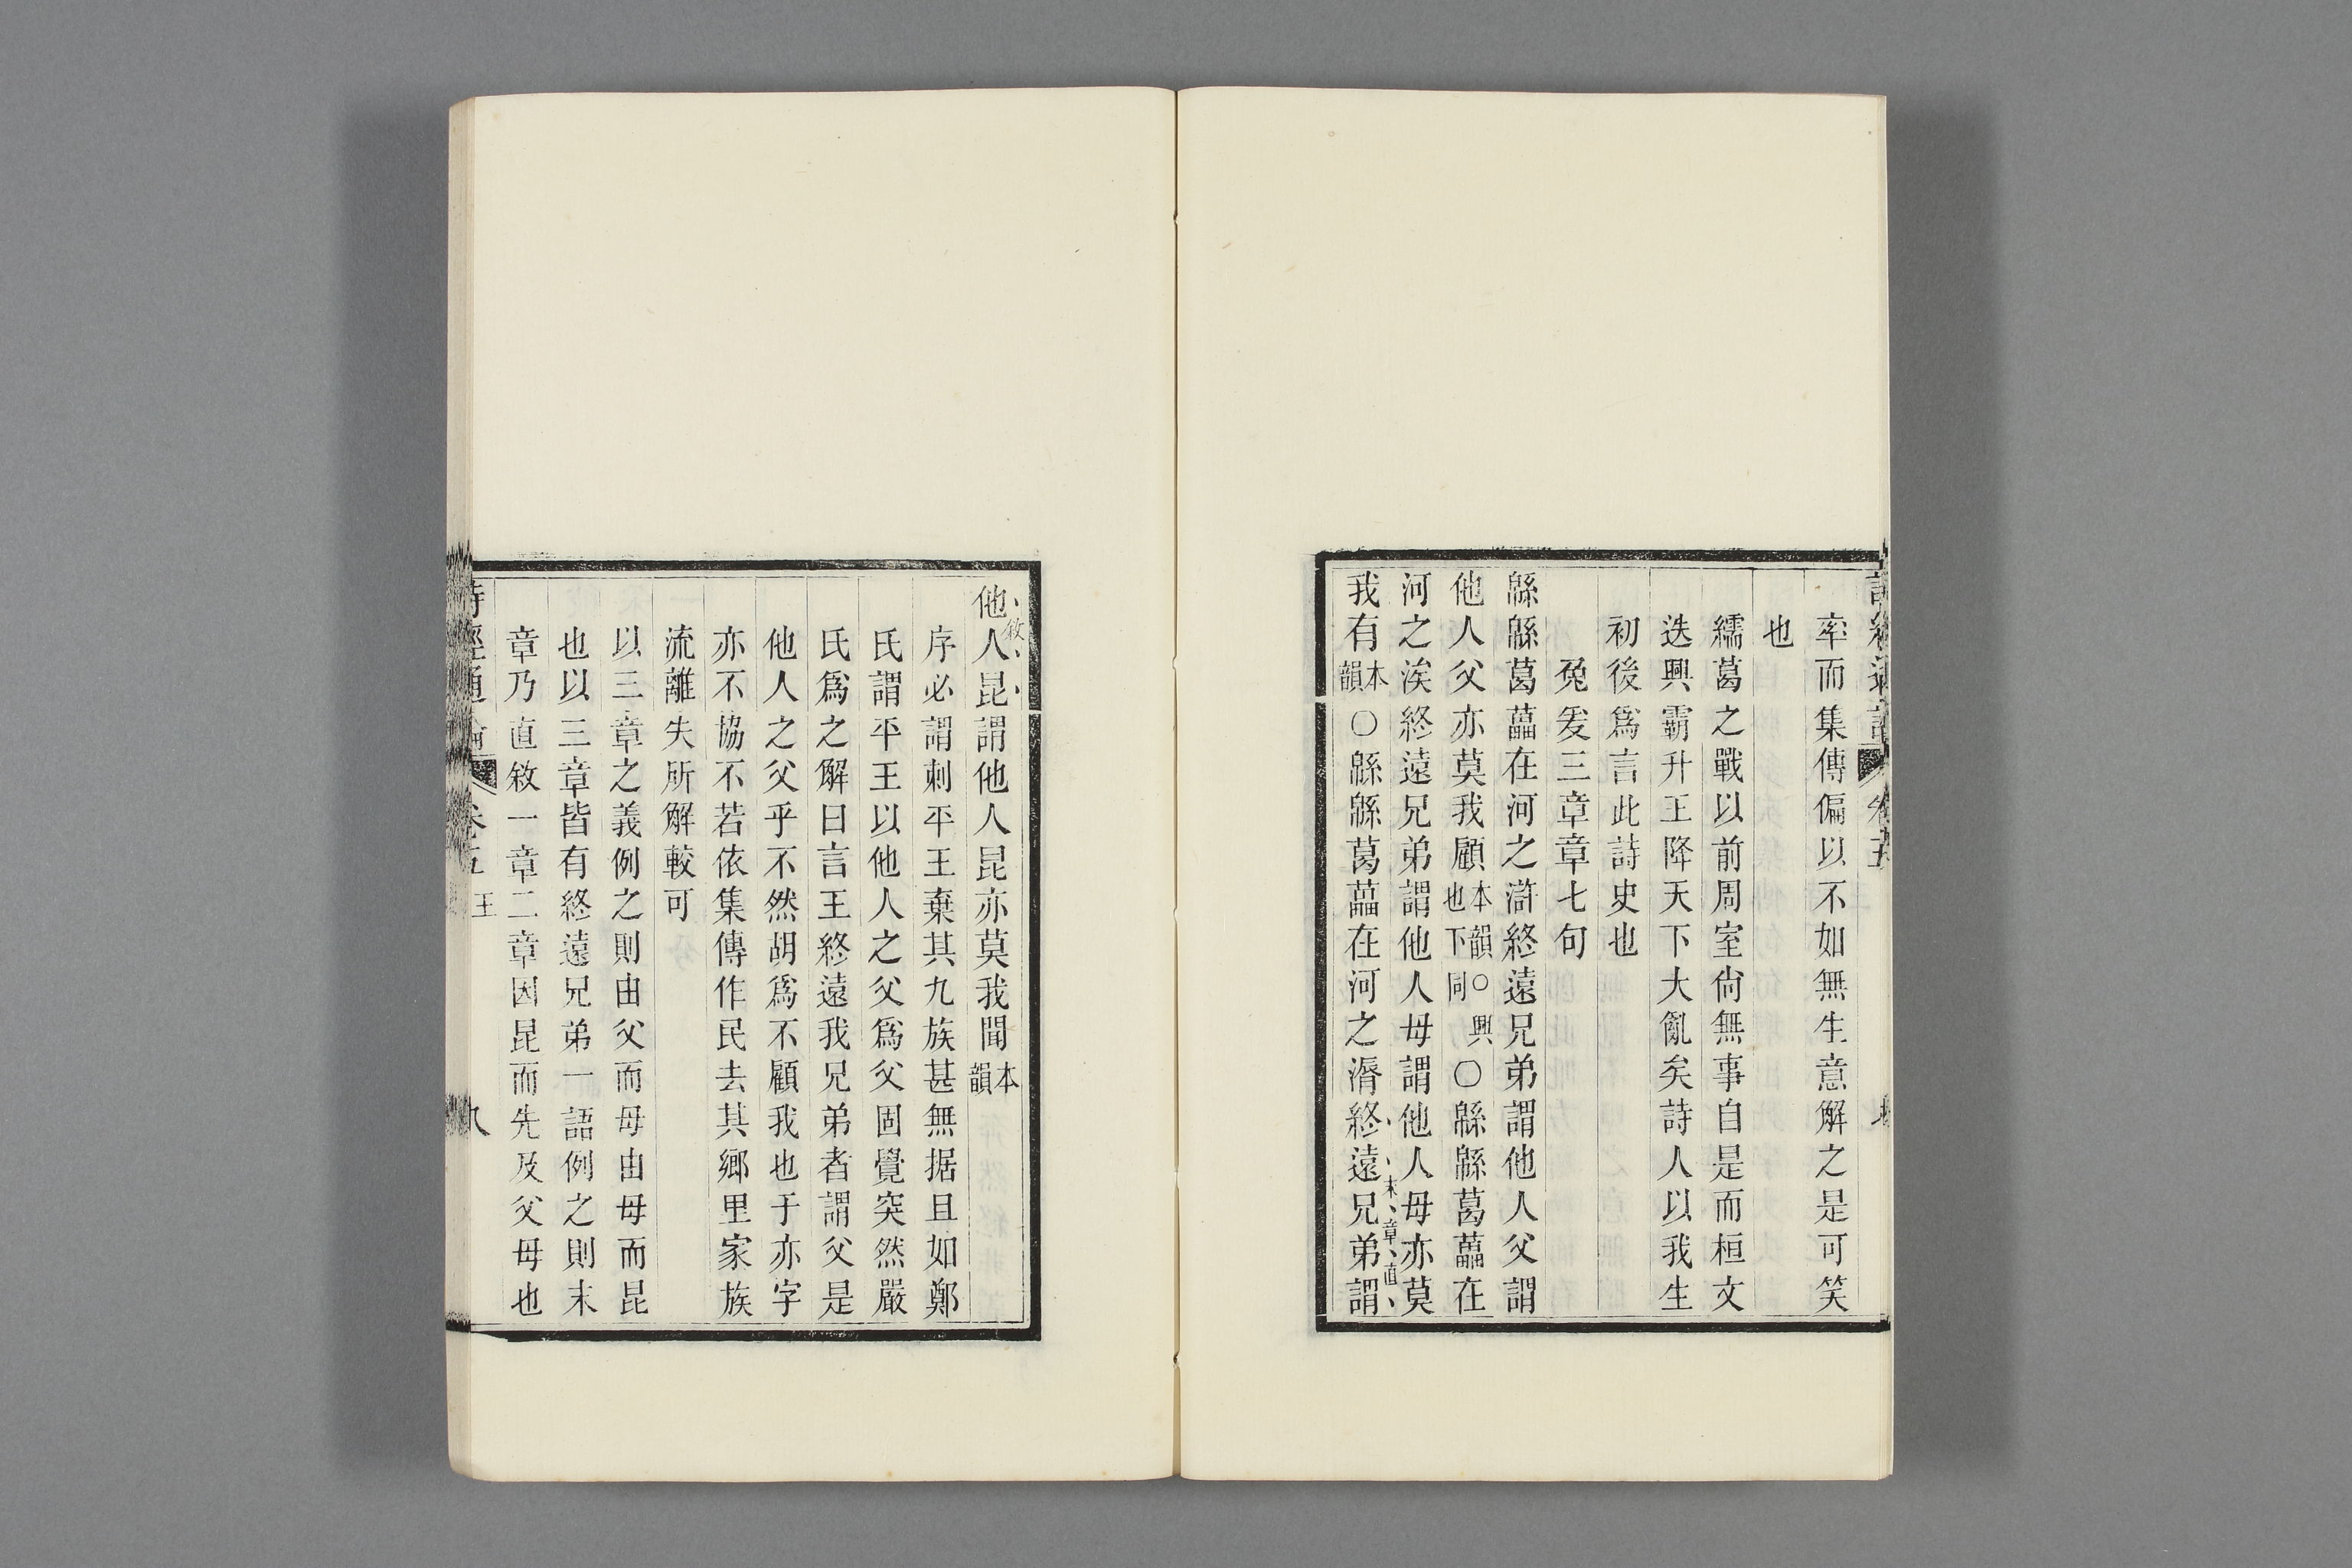 率而集傳偏以不如無生意解之是可笑
也
繻葛之戰以前周室尙無事自是而桓文
迭興霸升王降天下大亂矣詩人以我生
初後爲言此詩史也
兔爰三章章七句
緜緜葛藟在河之滸終遠兄弟謂他人父謂
他人父亦莫我顧本韻○興也下同○緜緜葛藟在
河之涘終遠兄弟謂他人母謂他人母亦莫
我有本韻○緜緜葛藟在河之漘終遠兄弟謂
末章直
敘
他人昆謂他人昆亦莫我聞本韻
序必謂刺平王棄其九族甚無据且如鄭
氏謂平王以他人之父爲父固覺突然嚴
氏爲之解曰言王終遠我兄弟者謂父是
他人之父乎不然胡爲不顧我也于亦字
亦不協不若依集傳作民去其鄉里家族
流離失所解較可
以三章之義例之則由父而母由母而昆
也以三章皆有終遠兄弟一語例之則末
章乃直敘一章二章因昆而先及父母也
詩經通論 卷五 王 九